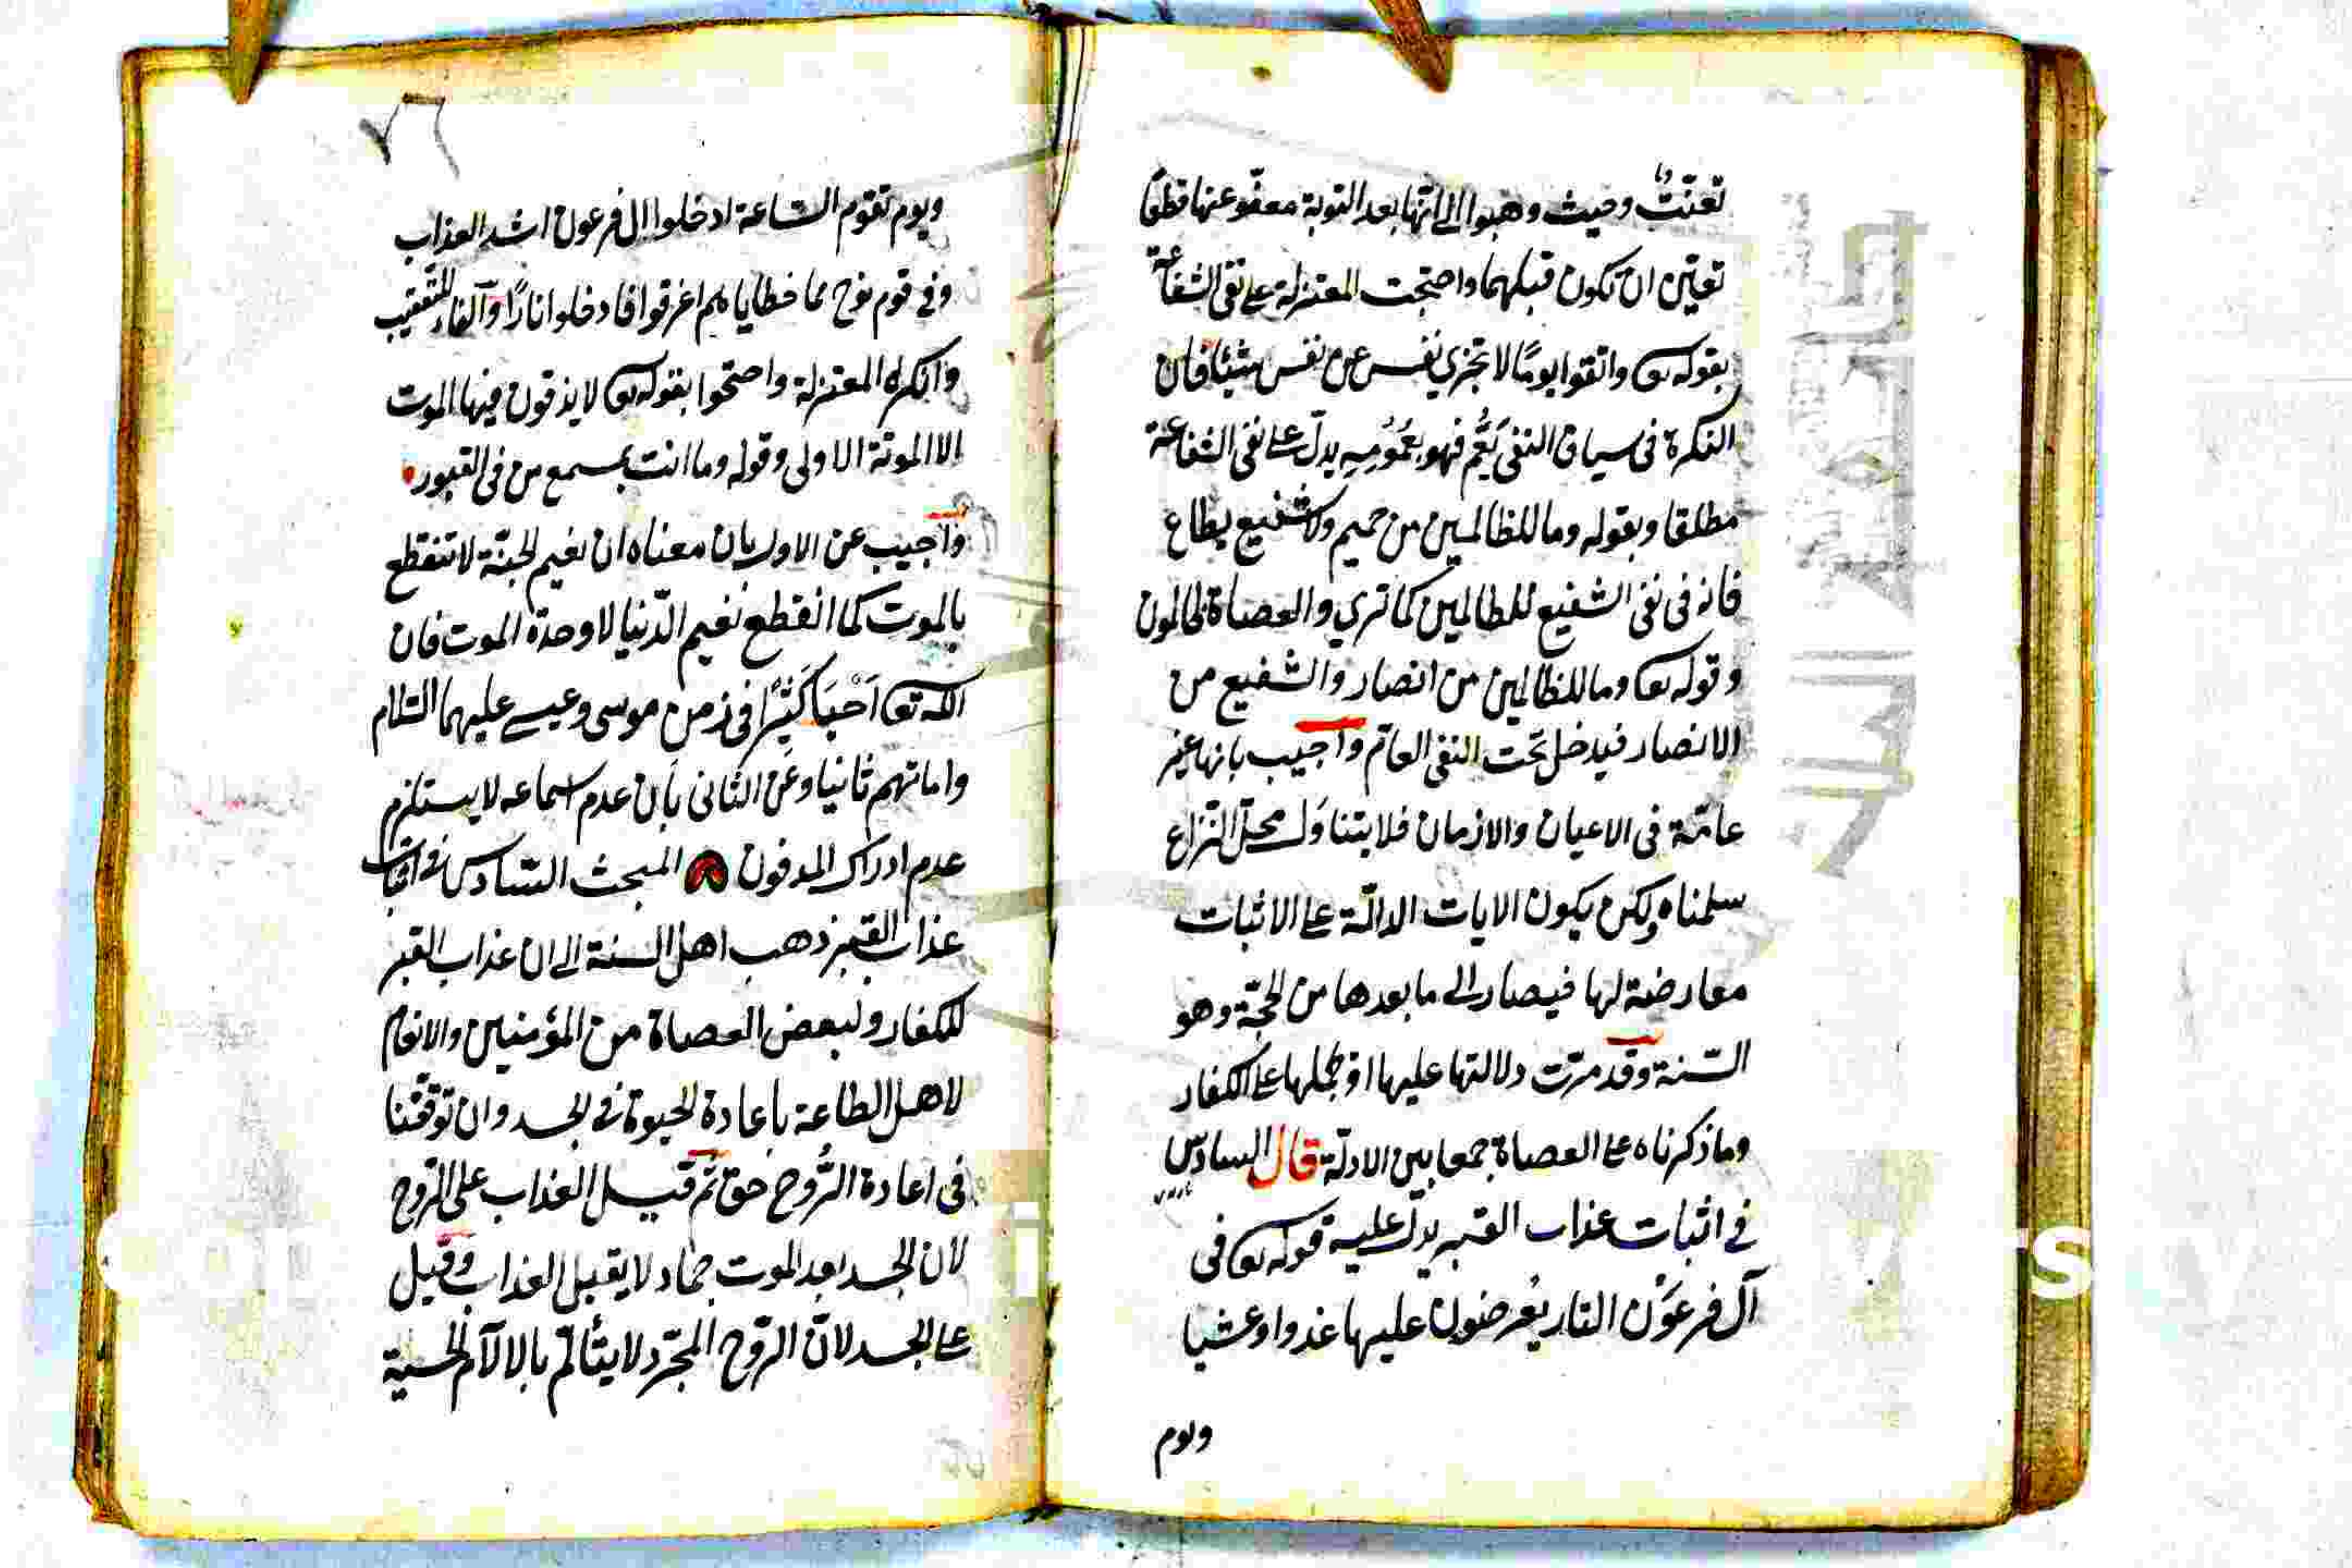 تعنّتٌ وحيث وهبوا الى انّها بعد التوبة معفوّ عنها قطعًا
تعيّن ان تكون قبلهما واحتجت المعتزلة على نفى الشفاعة
بقوله تعا واتقوا يومًا لا تجزي نفس عن نفس شيئا فان
النكرة فى سياق النفى يَعُمّ فهو بعُمُومِهِ يدلّ على نفى الشفاعة
مطلقا وبقوله وما للظالمين من حميم ولا شفيع يطاع
فانه فى نفى الشفيع للظالمين كما تري والعصاة ظالمون
وقوله تعا وما للظالمين من انصار والشفيع من
الانصار فيدخل تحت النفى العامّ واجيب بانها غير
عامّة فى الاعيان والازمان فلا يتناول محلّ النّزاع
سلمناه ولكن يكون الايات الدالّة على الاثبات
معارضة لها فيصار الى ما بعدها من الحجّة وهو
السّنة وقد مرّت دلالتها عليها او نحملها على الكفار
وما ذكرناه على العصاة جمعا بين الادلّة قال السادس
فى اثبات عذاب القبر يدل عليه قوله تعا فى
آل فرعَوْن النار يعُرضون عليها غدوا وعشيا
ويوم
٧٦
ويوم تقوم السّاعة ادخلوا ال فرعون اشد العذاب
وفى قوم نوح مما خطاياهم اغرقوا فادخلوا نارًا وآلفاء للتعقيب
وانكره المعتزلة واحتجوا بقوله تعا لا يذقون فيها الموت
الا الموتة الاولى وقوله وما انت بمسمع من فى القبور
واجيب عن الاول بان معناه ان نعيم الجنّة لا تنقطع
بالموت كما انقطع نعيم الدّنيا لا وحدة الموت فان
الله تعا اَحْيَا كَثيًرا فى زمن موسى وعيسے عليهما السّلام
واماتهم ثانيا وعن الثانى بأن عدم اسماعه لا يستلزم
عدم ادراك المدفون المبحث السّادس فى اثبات
عذاب القبر ذهب اهل السنة الى ان عذاب القبر
للكفار ولبعض العصاة من المؤمنين والانعام
لاهل الطاعة باعادة الحيوة فى الجسد وان توقّفنا
فى اعادة الرُّوح حق ثمّ قيل العذاب على الرّوح
لان الجسد بعد الموت جماد لا يقبل العذاب وقيل
على الجسد لانّ الرّوح المجرّد لا يتألّم بالالآم الحسية